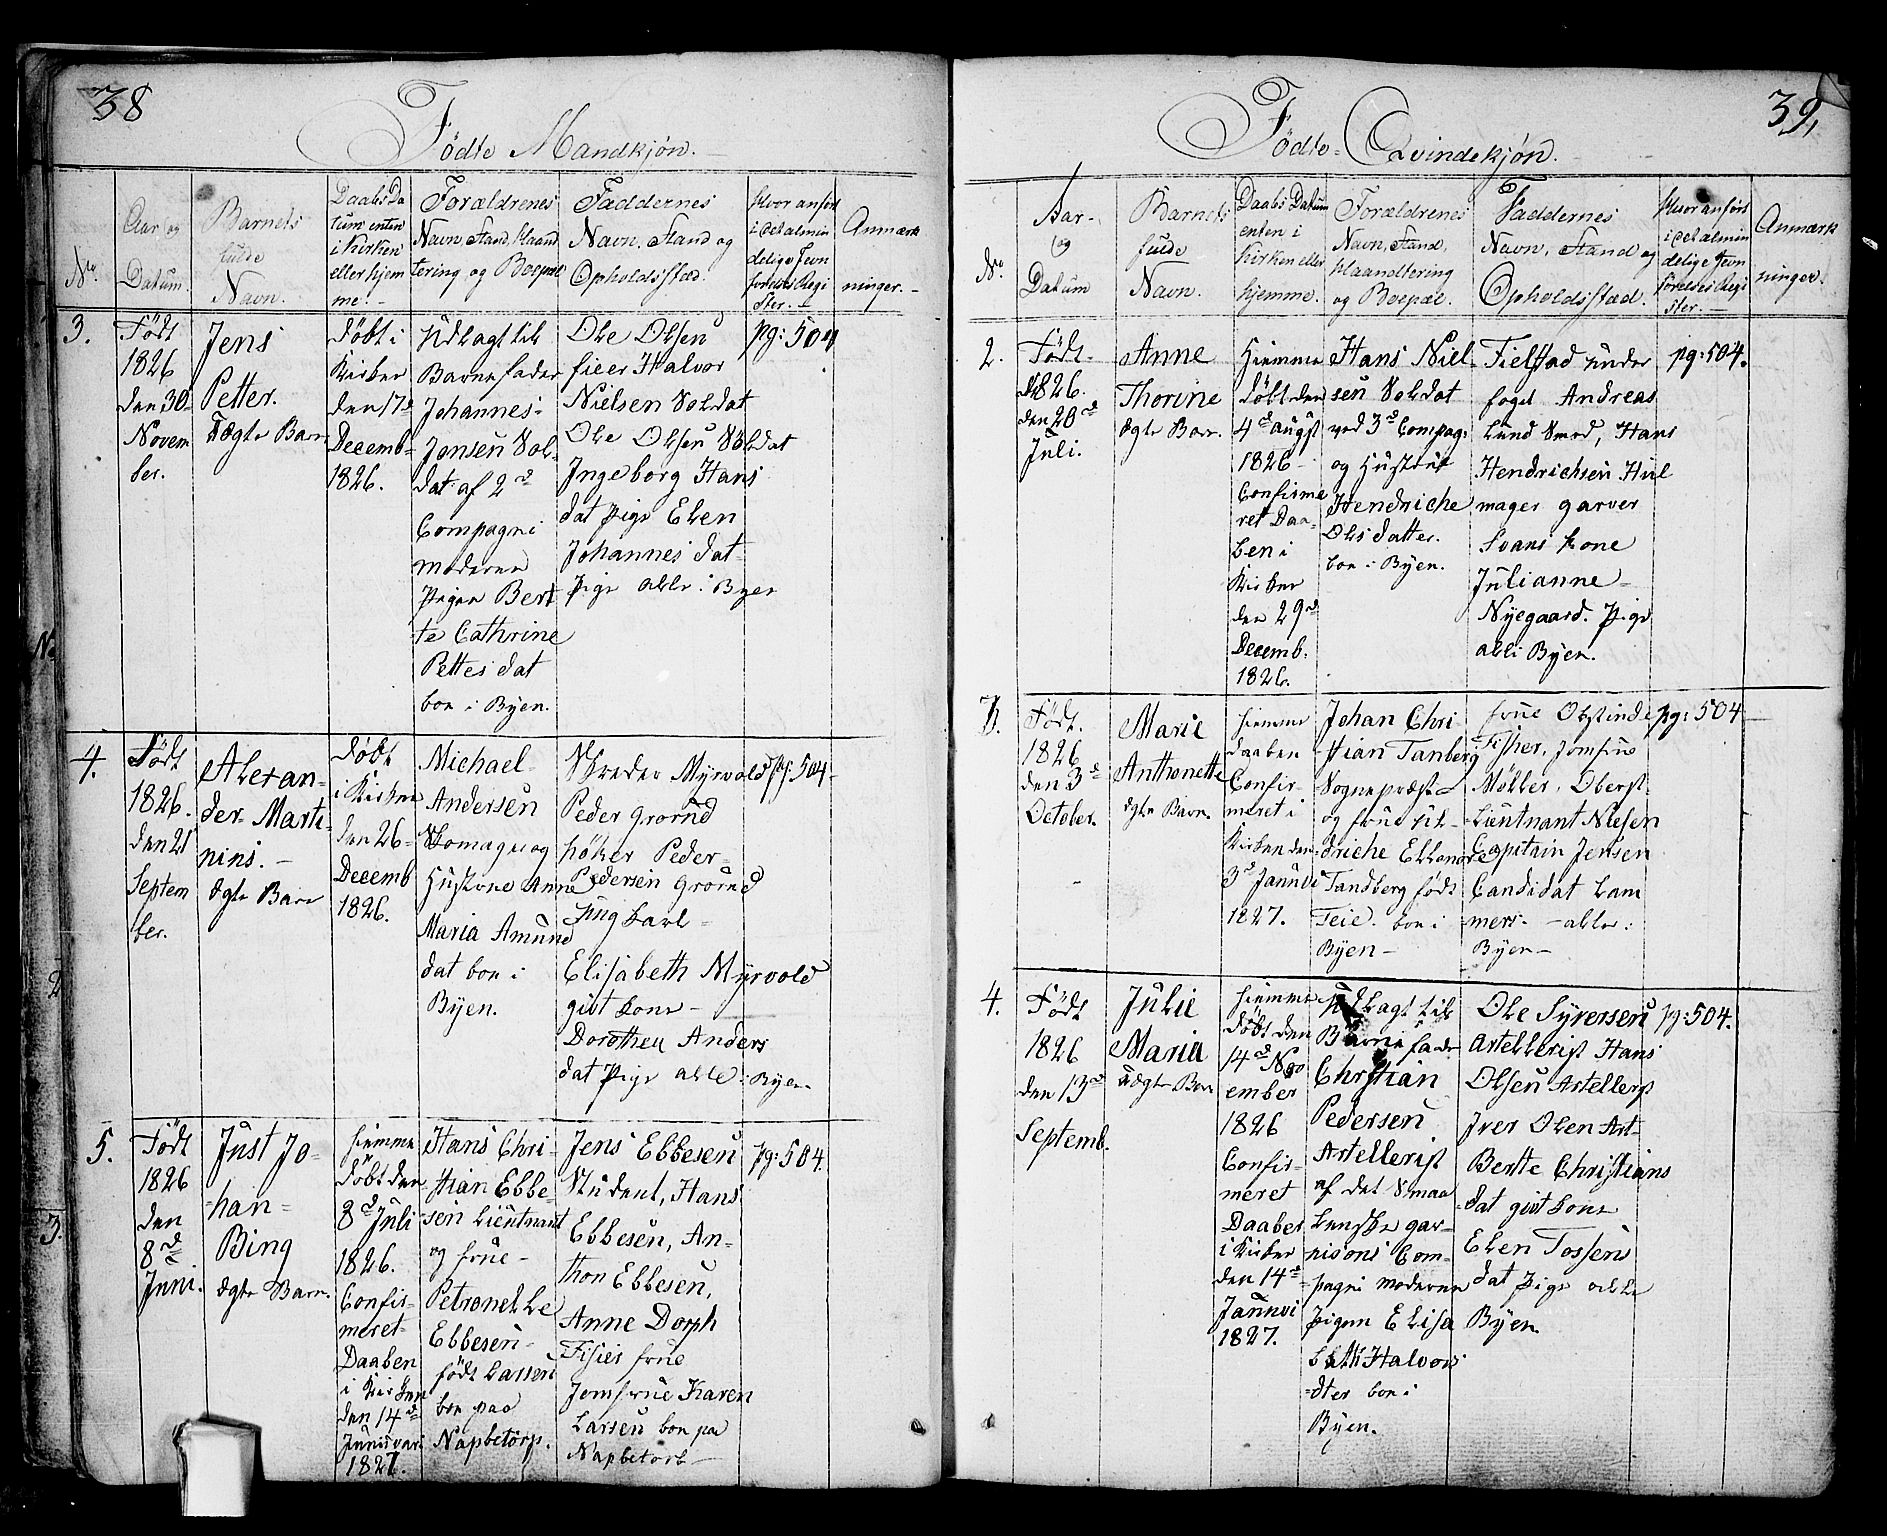 38
Födte Mandkjön.
No.
Aar og
Datum.
Barnets
fulde
Navn.
Daabs Da
tum enten
i Kirken
eller hjem
me.
Forældrenes
Navn, Stand, Haand
tering og Boepæl
Faddernes
Navn, Stand og
Opholdsstæd.
Hvor anført
i det almin
delige Jevn
förelses Regi
ster.
Anmærk
ninger.
3.
Födt
1826
den 30
Novem
ber.
Jens
Petter.
Uægte Barn
döbt i
Kirken
den 17d
Decemb.
1826.
Udlagt til
Barnefader
Johannes
Jensen Sol-
dat af 2d
Compagni
moderen
Pigen Bert
te Cathrine
Petters dat
boe i Byen.
Ole Olsen
fieer Halvor
Nielsen Soldat
Ole Olsen Soldat
Ingeborg Hans
dat Pige Elen
Johannes dat-
Pige alle i Byen
pg: 504
4.
Födt
1826.
den 21
Septem
ber.
Alexan-
der Marti-
nins.
ægte Barn
döbt
i Kirken
den 26
Decemb
1826.
Michael
Andersen
Skomager og
Hustroe Anne
Maria Amund
dat boe i
Byen.
Skreder Myrvold
Peder Grorud
höker Peder
Pedersen Grorud
Ung Karl
Elisabeth Myrvold
givt Kone
Dorothea Anders
dat Pige alle i Byen
pg: 504
5.
Födt
1826
den
8de
Juni.
Just Jo-
han
Bing
ægte Barn.
hiemme
döbt den
8d Juli
1826.
Confir-
meret
Daaben
i Kirken
den 14d
Januari
1827.
Hans Chri-
stian Ebbe-
sen Lieutnant
og frue
Petronelle
Ebbesen
födt Larsen
boe paa
Napbetorp.
Jens Ebbesen
Student, Hans
Ebbesen, An-
thon Ebbesen,
Anne Dorph
Frue
Jomfrue Karen
Larsen boe pa
Napbetorb
pg: 504.
39,
Födte Qvindekjön.
No.
Aar-
og
Datum
Barnets
fulde
Navn.
Daabs Datum
enten i
Kirken eller
hjemme.
Forældrenes
Navn, Stand,
Haandtering
og Boepæl.
Faddernes
Navn, Stand og
Opholdsstæd.
Hvor anført
i det almin
delige Jevn
förelses Regi
ster.
Anmærk
ninger.
2.
Födt
1826.
den 20d
Juli.
Anne
Thorine
ægte Barn.
Hiemme
döbt den
4d Augst
1826
Confirme
ret Daa-
ben i
Kirken
den 29d
Decemb.
1826.
Hans Niel
sen Soldat
ved 3d Compag:
og Hustrue
Hendriche
Ols datter.
boe i Byen.
Fielstad under
foget Andreas
Lund Smed, Hans
Hendrichsen Hul
mager garver
Svans Kone
Julianne
Nyegaard. Pige
alle i Byen.
pg: 504.
3.
Födt.
1826
den 3d
October.
Marie
Anthonette
ægte Barn.
hiemme
daaben
Confir-
meret i
Kirken den
3d Januari
1827.
Johan Chri-
stian Tanberg
Sognepræst
og frue
driche Ellenore
Tandberg födt
Feie. boe i
Byen
frue Obstinde
Fisher, Jomfrue
Møller, Oberst-
Lieutnant Nielsen
Capitain Jensen
Candidat Lam
mers alle i
Byen
pg: 504
4.
Födt
1826
den 13d
Septemb.
Julie
Maria
uægte Barn
hiemme
döbt den
14d Nov
ember
1826
Confir-
meret
Daaben
i Kirken
den 14d
Januari
1827.
Udlagt til
Barnefader
Christian
Pedersen
Artellerist
af det Smaa
lenske gar-
nisons Com-
pagni moderen
Pigen Elisa
beth Halvors
dter boe i
Byen.
Ole Syversen
Artellerist Hans
Olsen Artellerist
Iver Olsen Art-
Berthe Christians
dat givt Kone
Elen Tossens
dat Pige alle i
Byen
pg: 504.